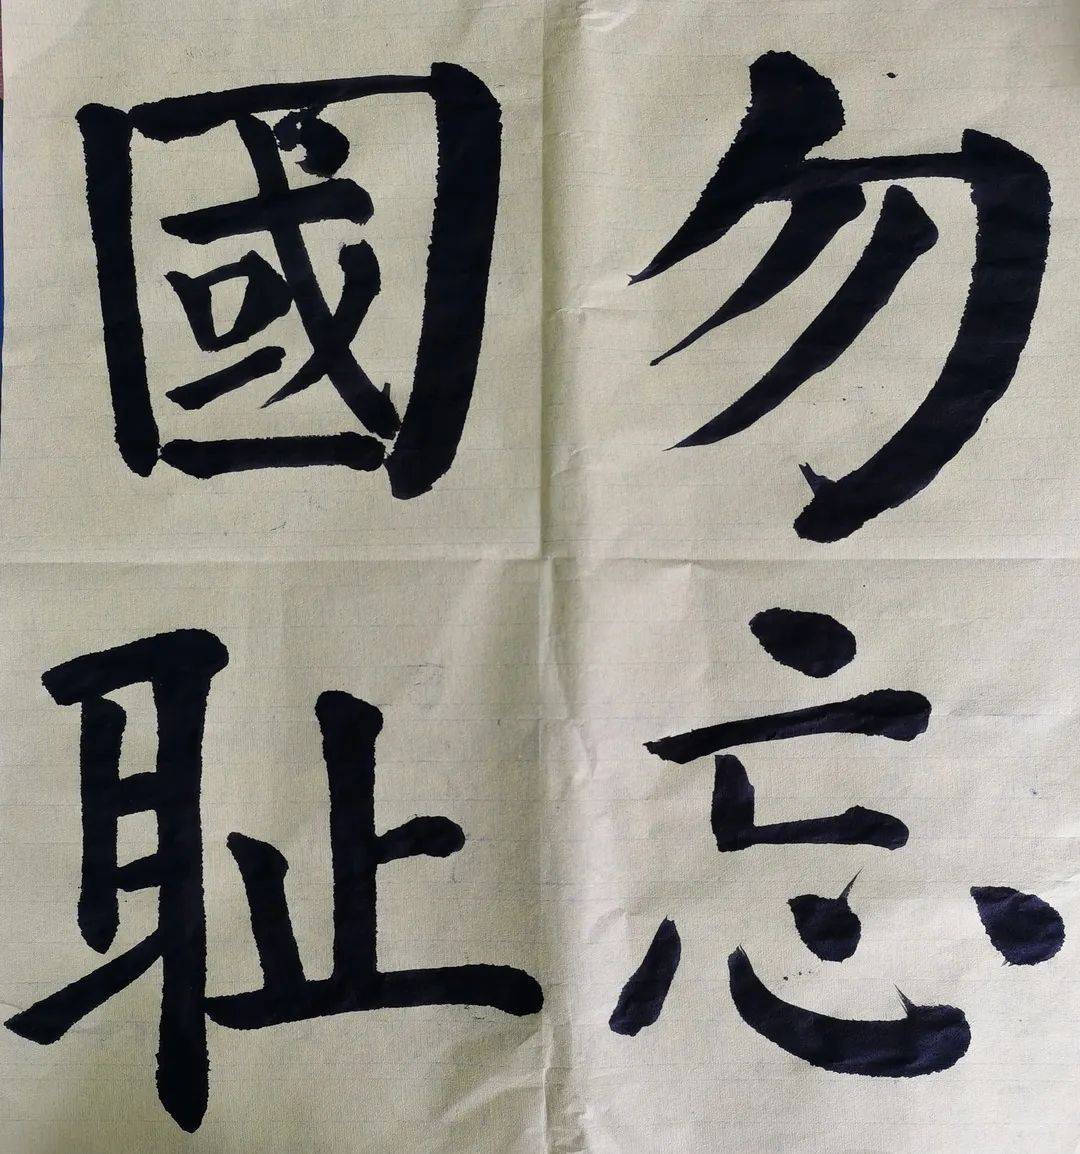 勿忘
國耻